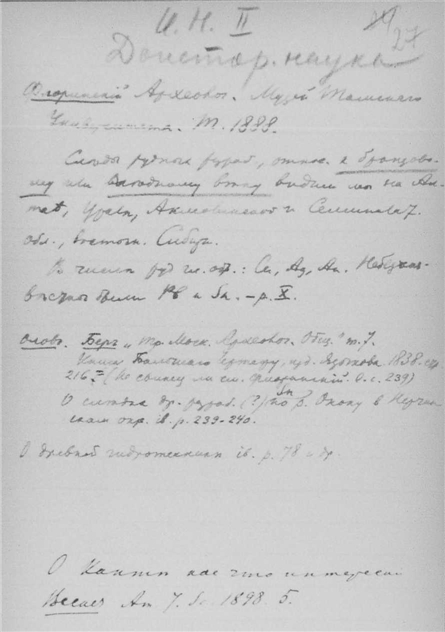 И. Н. II
27
Доистор. наука
Флоринский Археолог. Музей Томского
Университета. Т. 1888.
Следы рудных разраб., относ. к бронзово-
му или западному веку видим мы на Ал-
тае, Урале, Акмолинской и Семипалат.
обл., восточн. Сибири.
В числе руд
были Pb и Sn. – p. X.
Олово. Берг „Тр. Моск. Археолог. Общ." т. 7.
Книга Большого Чертежу, изд. Языкова 1838. стр
216 (Не свинец ли см. Флоринский. О. с. 239)
О следах др. разраб. (?) Sn по р. Онону в Нерчин-
ском окр. ib. p. 239-240.
О древней гидротехники ib. p. 78 и др
О Канте кое что интересн.
Am. J. Sc. 1898. 5.